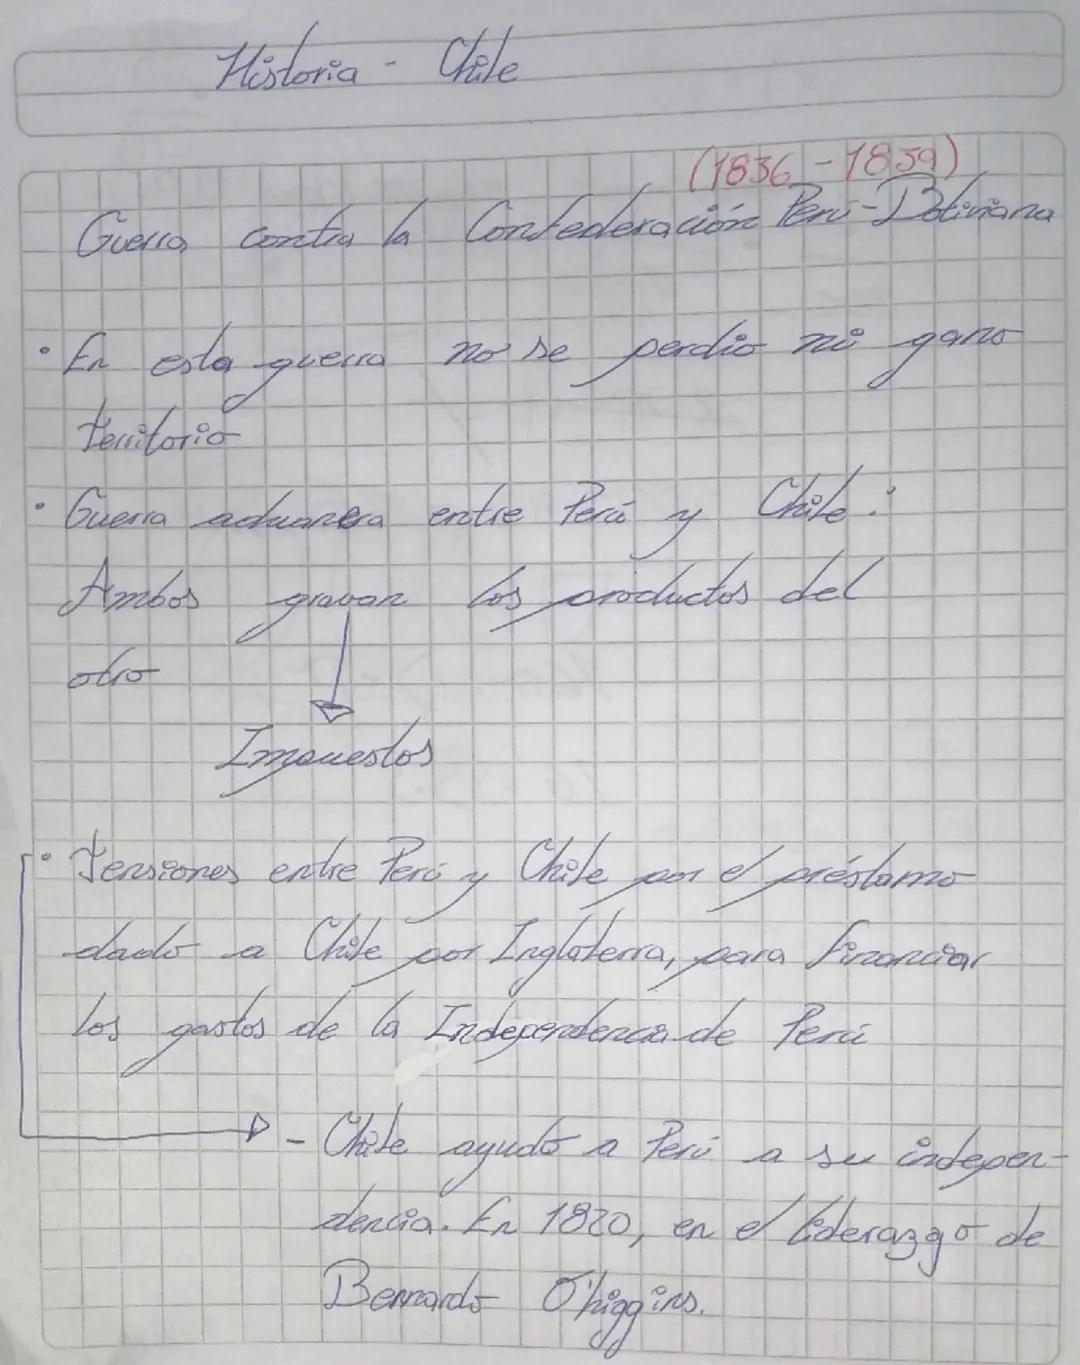 Historia - Chile
(1836 - 1839)
Guerra contra la Confederación Perú-Boliviana
• En esta guerra no se perdio ni gano
territorio
• Guerra aduanera entre Perú y Chile:
Ambos gravan los productos del
otro
Impuestos
• Tensiones entre Perú y Chile por el préstamo
dado a Chile por Inglaterra, para financiar
los gastos de la Independencia de Perú
- Chile ayudó a Perú a su indepen-
dencia. En 1820, en el liderazgo de
Bernardo O'higgins.